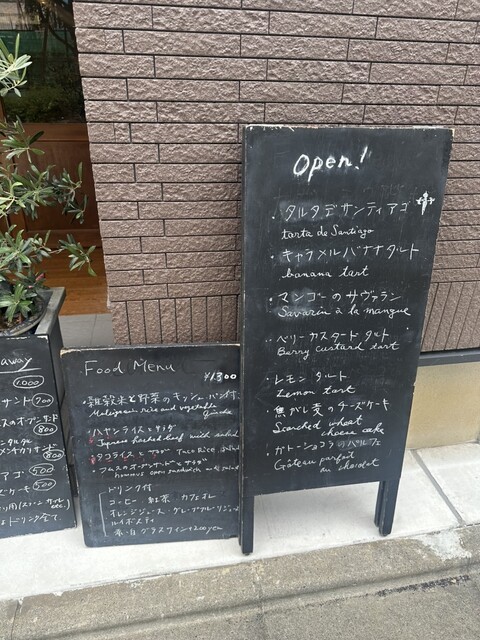 Open!
・タルタデサンティアゴ
tarta de Santiago
・キャラメルバナナタルト
banana tart
・マンゴーのサヴァラン
Savarin à la mangue
・ベリーカスタードタルト
Berry custard tart
・レモンタルト
Lemon tart
・焦がし麦のチーズケーキ
Scorched wheat
cheese cake
・ガトーショコラのパルフェ
Gateau parfait
au chocolat
Food Menu
¥1300
・雑穀米と野菜のキッシュ、パン付
rice and vegetable
・ハヤシライスとサラダ
beef with salad
・タコライスとサラダ Taco Rice
フムスのオープンサンドとサラダ
houmous open sandwich
ドリンク付
コーヒー 紅茶 カフェオレ
オレンジジュース・グレープフルーツジュース
ルイボスティ
赤・白グラスワイン+200yen
away
1,000
サンド 700
オープンサンド
800
800
アゴ 500
ズケーキ 500
etc.)